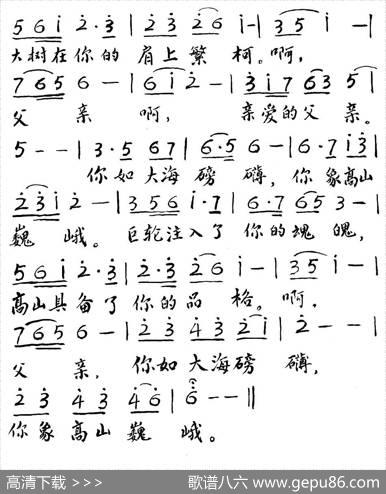 5 6 i 2·3 | 2 3 2 6 i - | 3 5 i - |
大树在你的 肩上繁 柯。啊,
7 6 5 6 - | 6 i 2 - | 3 i 7 6 3 5 |
父 亲 啊, 亲爱的父 亲。
5 - - | 3·5 6 7 | 6·5 6 - | 6·7 i 3 |
你如大海 磅 礴, 你象高山
2 3 i 2 - | 3 5 6 i·7 | 6·7 6 5 3 - |
巍 峨。 巨轮注入了 你的块 魄,
5 6 i 2·3 | 2·3 2 6 i - | 3 5 i - |
高山具备了 你的品 格。啊,
7 6 5 6 - | 2 3 4 3 2 i | 2 - - |
父 亲, 你如大海磅 礴,
2 3 4 3 4 6 | 6 - - ||
你象高山 巍 峨。
高清下载 >>> 歌谱八六 www.gepu86.com